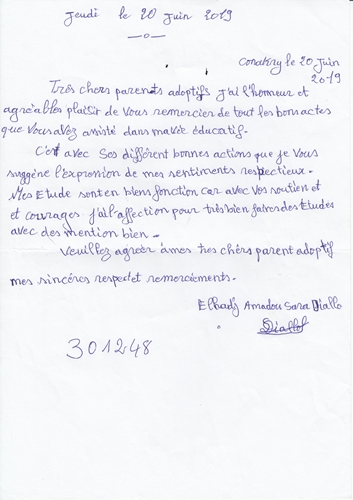 Jeudi le 20 Juin 2019
Conakry le 20 Juin
2019
Très chers parents adoptifs j'ai l'honneur et
agréables plaisir de vous remercier de tout les bons actes
que vous avez assisté dans ma vie éducatif.
C'est avec ses différent bonnes actions que je vous
suggère l'expression de mes sentiments respectieux.
Mes Etude sont en biens fonction car avec vos soutien et
et courages j'ai l'affection pour très bien faires des Etudes
avec des mention bien.
Veuillez agréer à mes tres chèrs parent adoptif
mes sincéres respect et remerciements.
Elhadj Amadou Sara Diallo
Diallo
301248